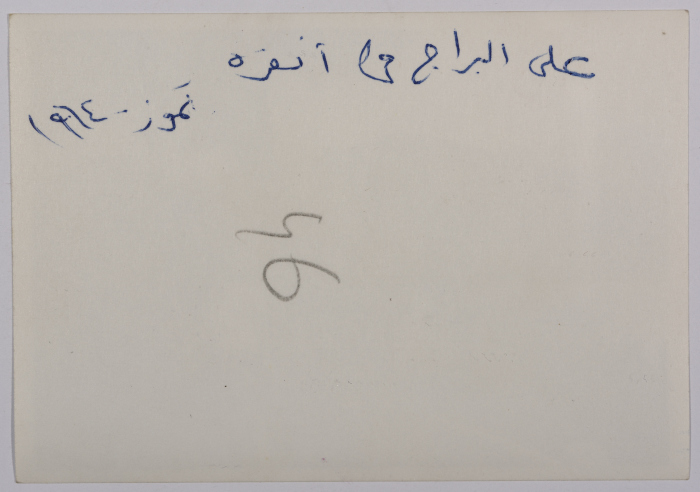 على البراج في أنقره
تموز - ١٩٦٤
46